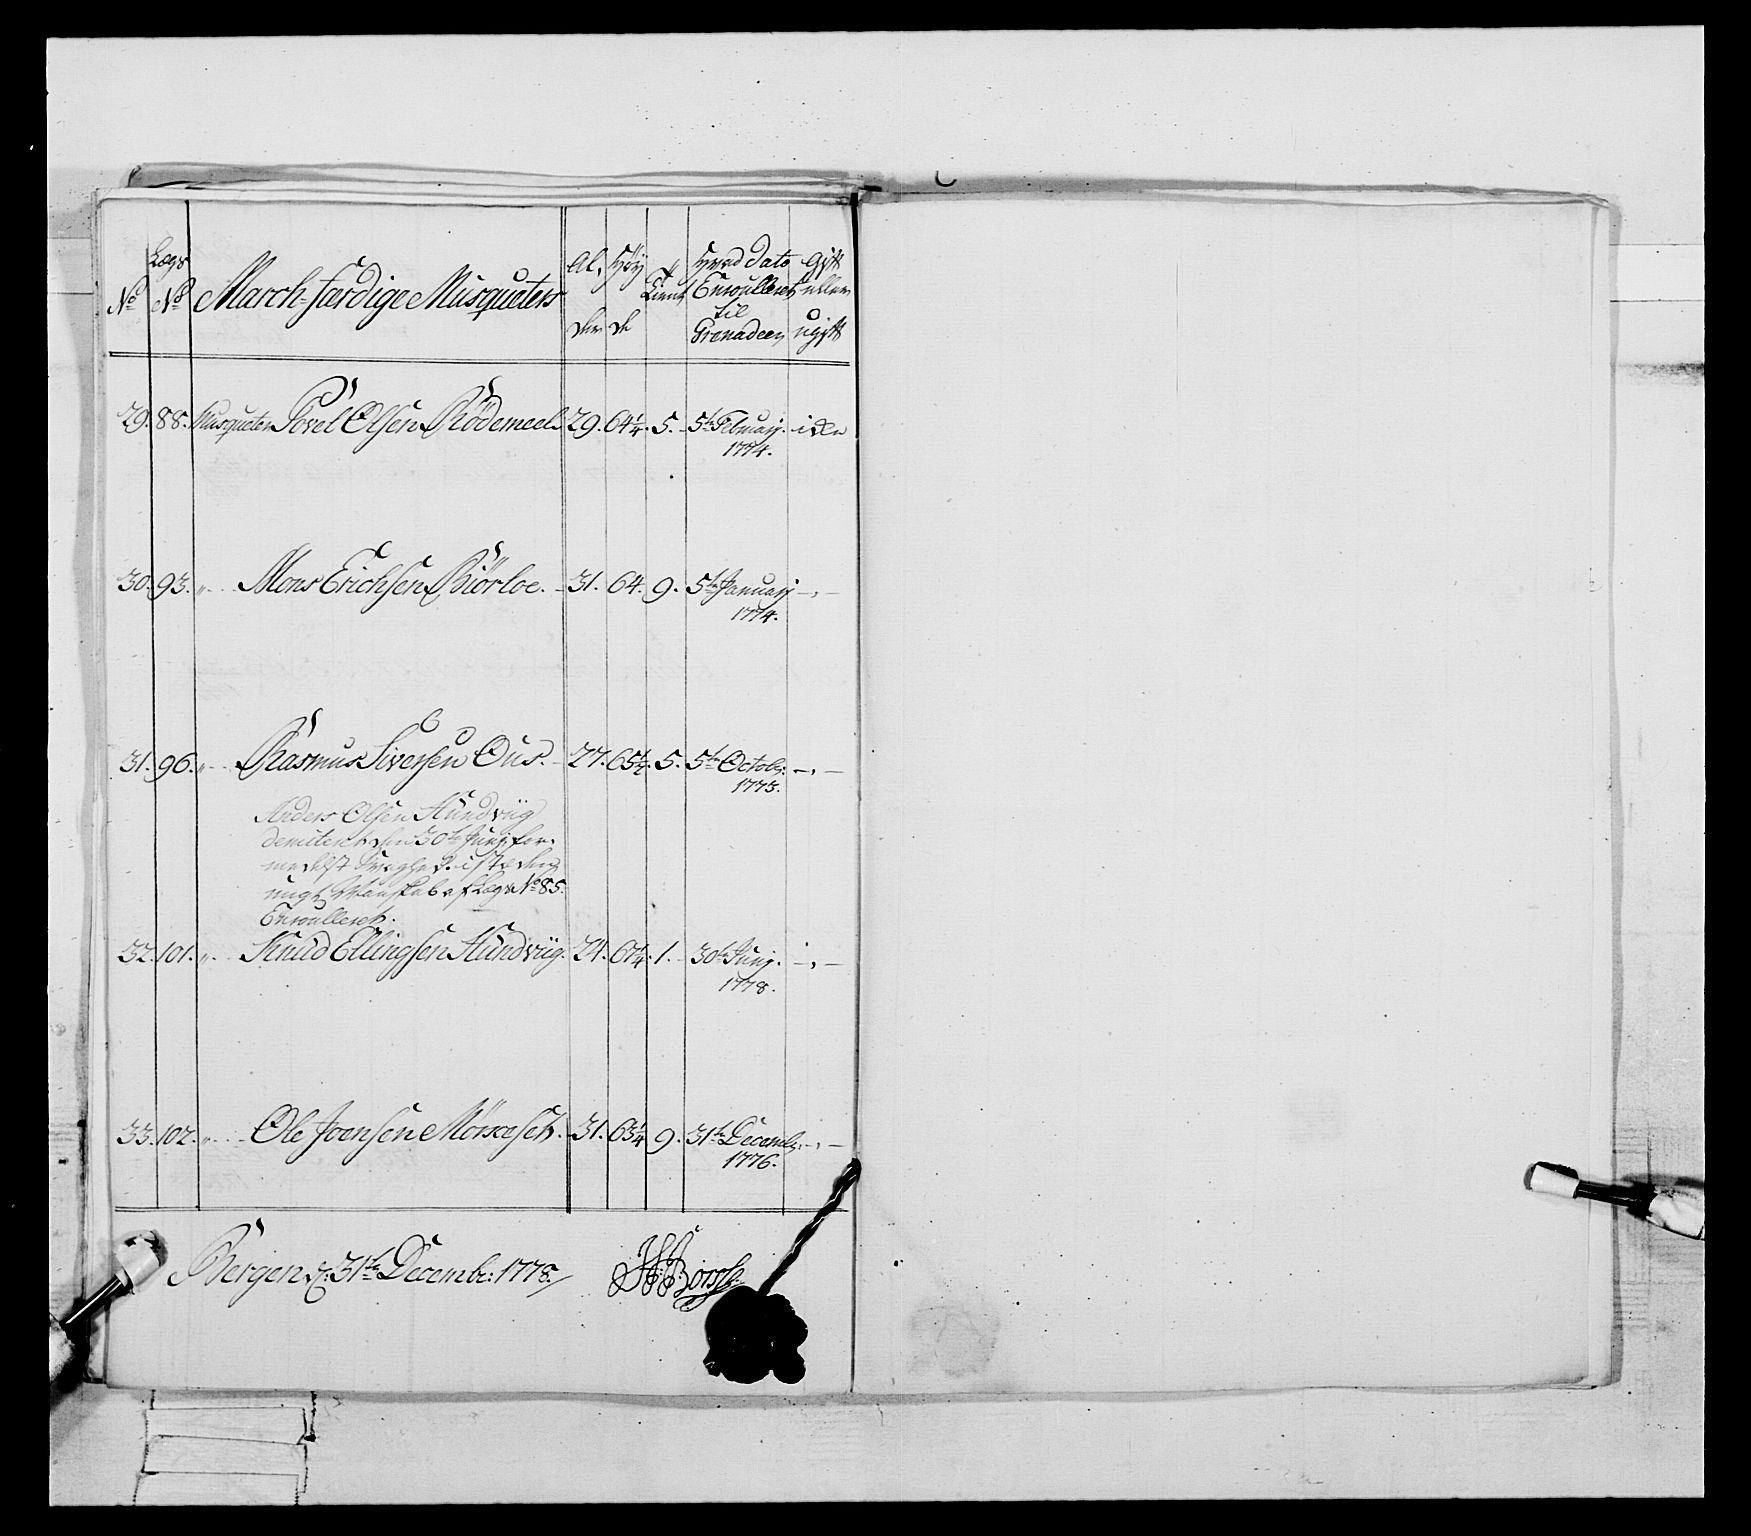 No Lægs No March-færdige Musqueters Alder Høyde Tient Hvad Dato Enroulleret til Grenadeer Gift eller ugift
29. 88. Musqueter Povel Olsen Rödemeel 29. 64 1/4. 5. 5te Februarij 1774.
30. 93. " Mons Erichsen Biörloe. 31. 64. 9. 5te Januarij 1774. - " -
31. 96. " Rasmus Siversen Ous. 27. 65 1/2. 5. 5te Octobr: 1773. - " -
Anders Olsen Hundvüg
demiteret den 30te Junj for-
medelst Svaghed. i stæden
ungt Mandskab af Lægs No 85.
Enroulleret.
32. 101. " Knud Ellingsen Hundvüg. 24. 61/4. 1. 30te Junj. 1778. - " -
33. 102. " Ole Joensen Mörceseth. 31. 63 1/4 9. 31te Decembr. 1776. - " -
Bergen d: 31te Decembr: 1778.